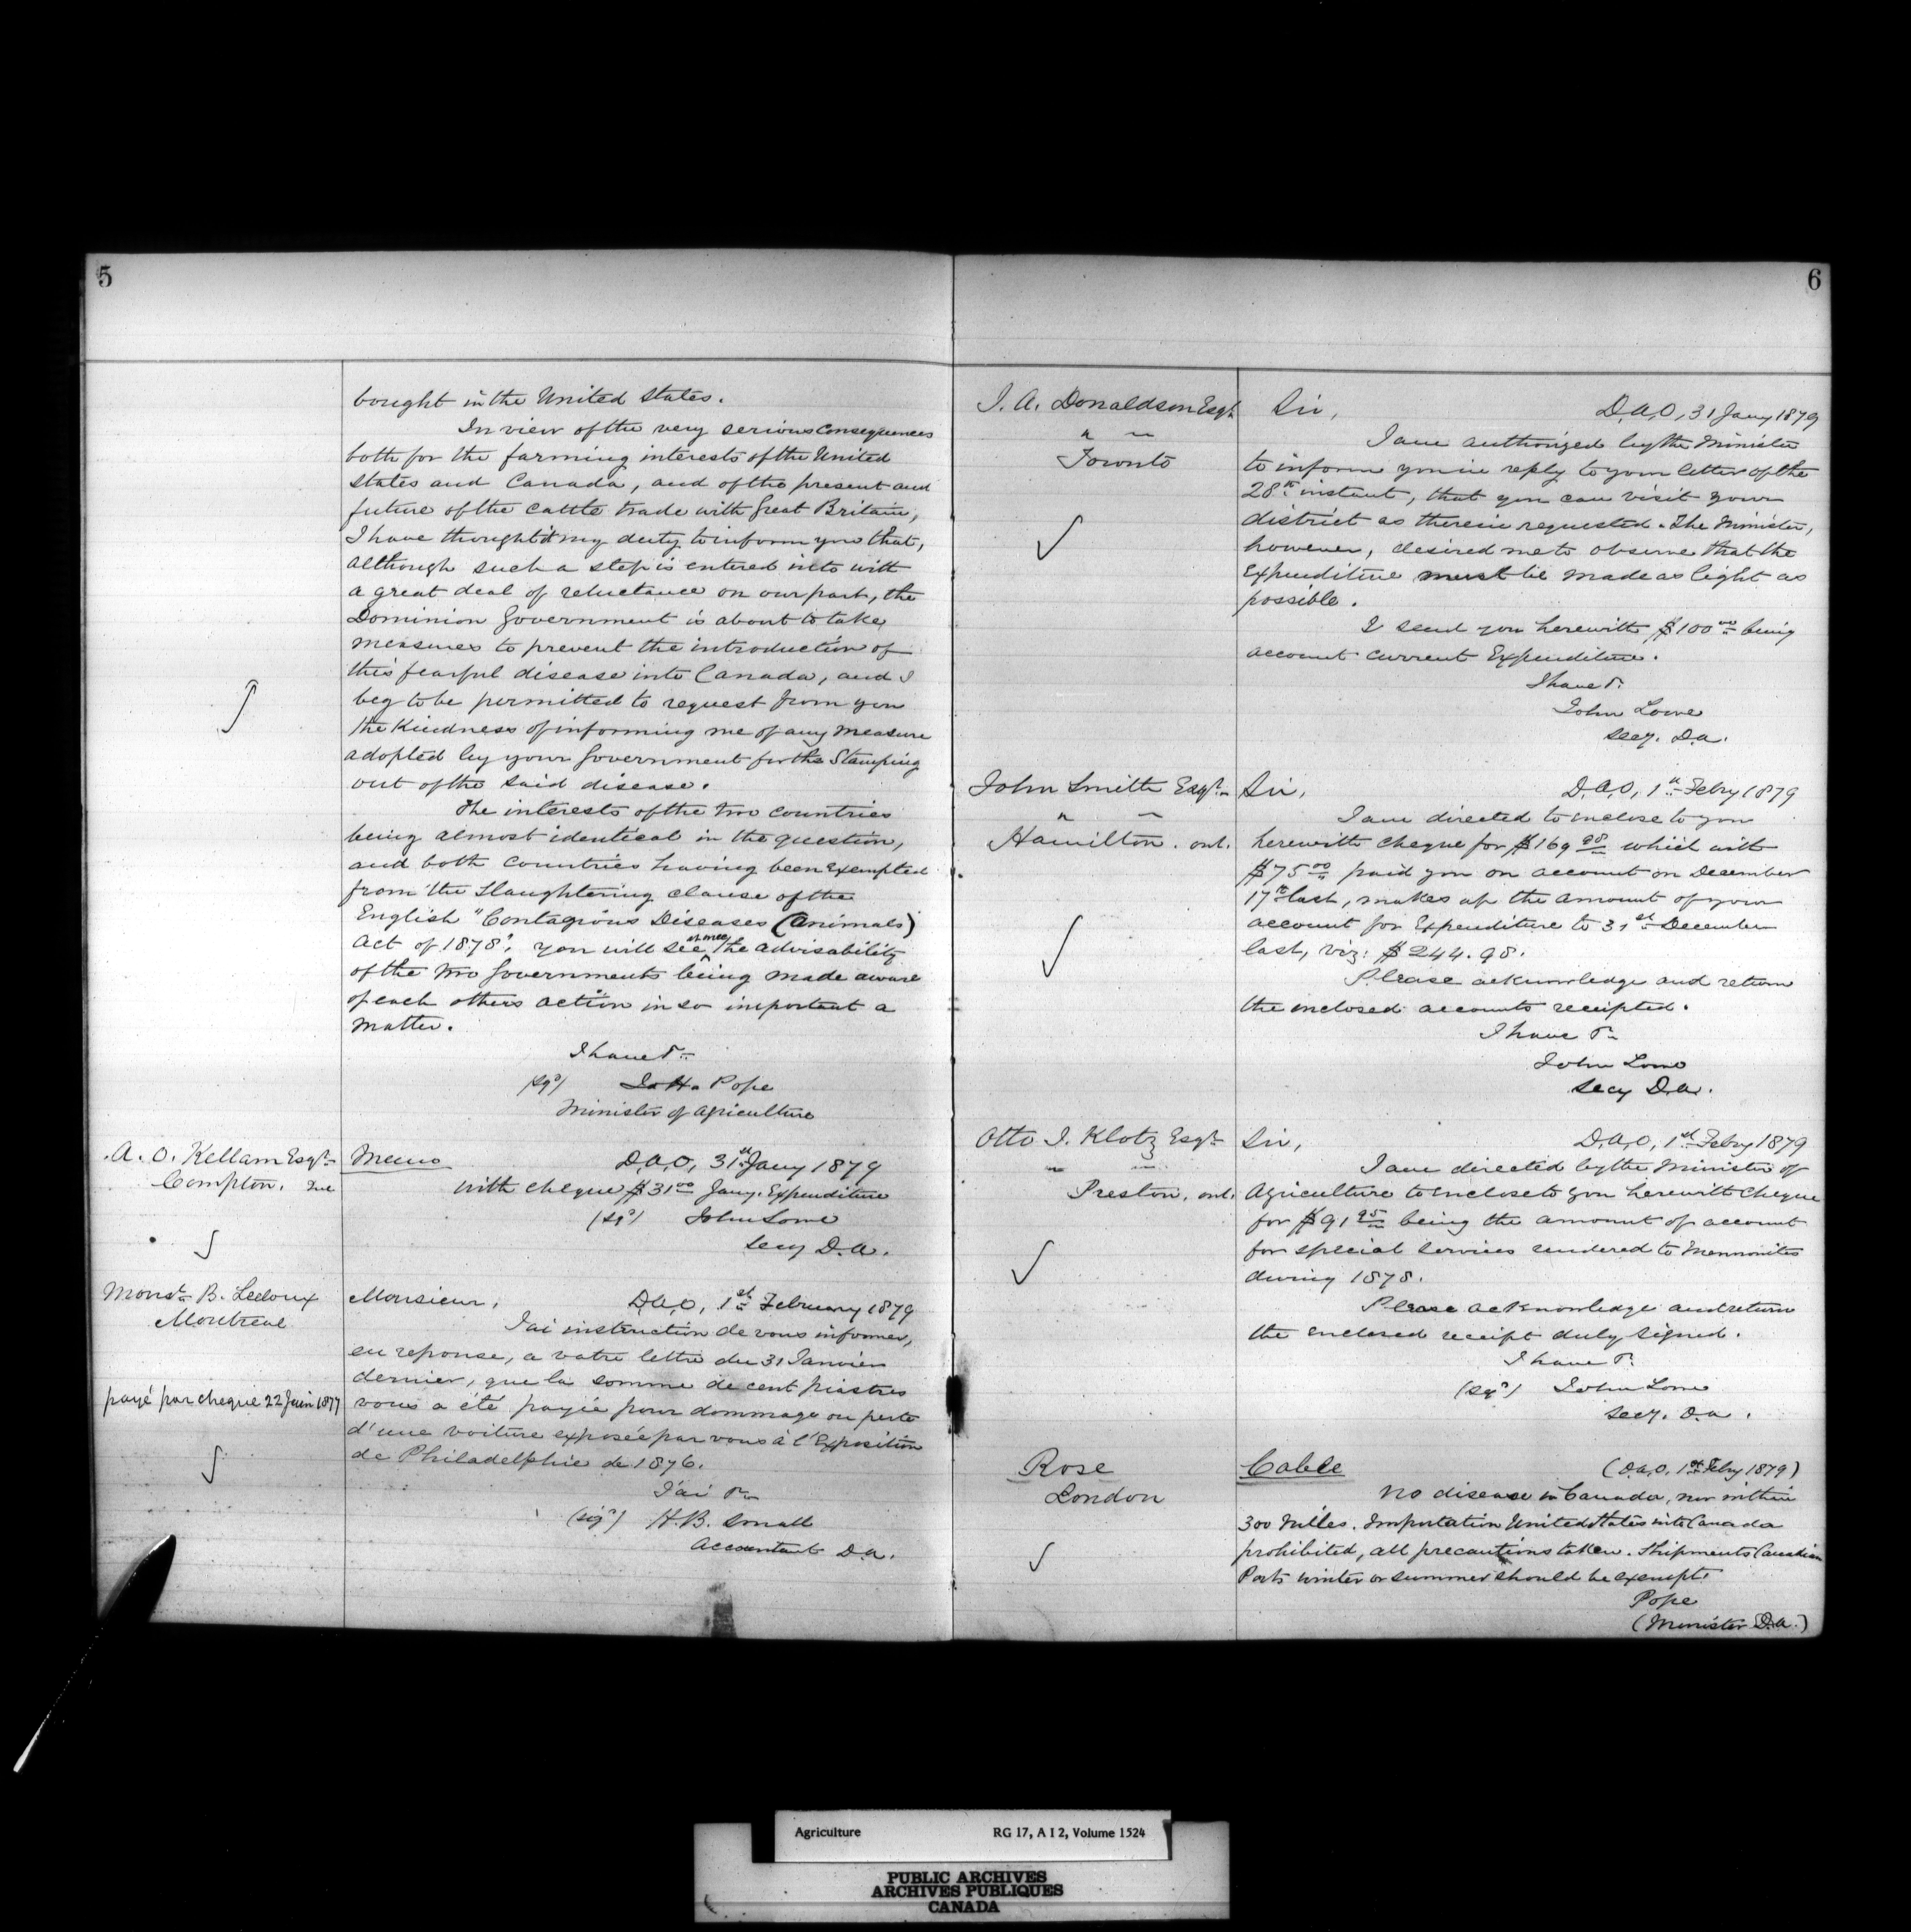 5
bought in the United States.
In view of the very serious consequences
both for the farming interests of the United
States and Canada, and of the present and
future of the cattle trade with Great Britain,
I have thought it my duty to inform you that,
although such a step is entered into with
a great deal of reluctance on our part, the
Dominion Government is about to take
measures to prevent the introduction of
this fearful disease into Canada, and I
beg to be permitted to request from you
the kindness of informing me of any measure
adopted by your Government for the Stamping
out of the said disease.
The interests of the two countries
being almost identical in the question,
and both countries having been exempted
from the slaughtering clause of the
English "Contagious Diseases (Animals)
Act of 1878", you will see at once the advisability
of the two Governments being made aware
of each others action in so important a
matter.
I have &c
(sgd) J. H. Pope
Minister of Agriculture
A. O. Kellam Esqr
Compton. Que
Memo D.A.O, 31st Jany 1879
With cheque $31.00 Jany. Expenditure
(sgd) John Lowe
Secy D.A.
Monsr B. Ledoux
Montreal
payé par cheque 22 Juin 1877
Monsieur, D.A.O, 1st February 1879
J'ai instruction de vous informer,
en reponse, a votre lettre du 31 Janvier
dernier, que la somme de cent piastres
vous a été payée pour dommage ou perte
d'une voiture exposée par vous à l'Exposition
de Philadelphie de 1876.
J'ai &c
(sigd) H.B. Small
Accountant D.A.
6
J. A. Donaldson Esqr
" "
Toronto
Sir, D.A.O, 31 Jany 1879
I am authorized by the Minister
to inform you in reply to your letter of the
28th instant, that you can visit your
district as therein requested. The Minister,
however, desired me to observe that the
Expenditure must be made as light as
possible.
I send you herewith $100.00 being
account current Expenditure.
I have &c
John Lowe
Secy. D.A.
John Smith Esqr
" "
Hamilton. Ont.
Sir, D.A.O, 1st Feby 1879
I am directed to inclose to you
herewith cheque for $169.98 which with
$75.00 paid you on account on December
17th last, makes up the amount of your
account for Expenditure to 31st December
last, viz: $244.98.
Please acknowledge and return
the inclosed accounts receipted.
I have &c
John Lowe
Secy D.A.
Otto J. Klotz Esqr
" "
Preston. Ont.
Sir, D.A.O, 1st Feby 1879
I am directed by the Minister of
Agriculture to enclose to you herewith cheque
for $91.95 being the amount of account
for special services rendered to Mennonites
during 1878.
Please acknowledge and return
the enclosed receipt duly signed.
I have &c
(sgd) John Lowe
Secy. D.A.
Rose
London
Cable (D.A.O. 1st Feby 1879)
No disease in Canada, nor within
300 Miles. Importation United States into Canada
prohibited, all precautions taken. Shipments Canadian
Ports winter or summer should be exempt.
Pope
(Minister D.A.)
Agriculture RG 17, A I 2, Volume 1524
PUBLIC ARCHIVES
ARCHIVES PUBLIQUES
CANADA